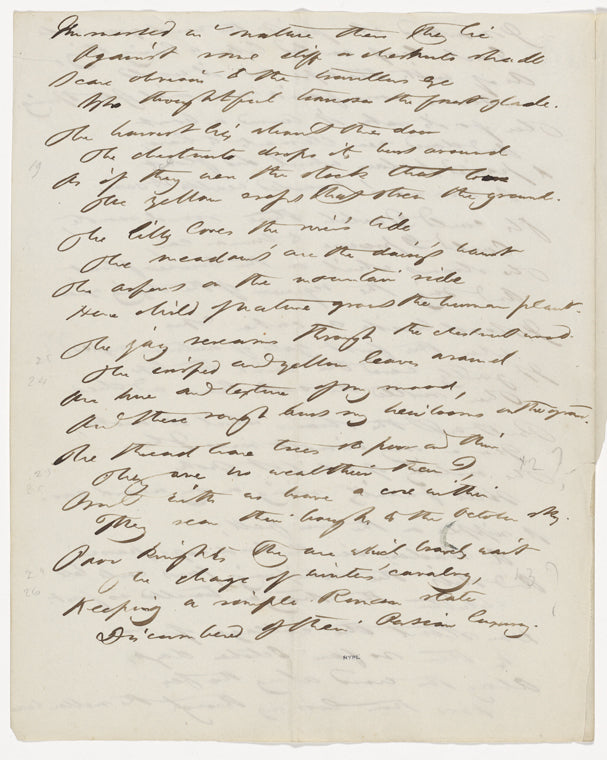 Immersed in nature there they lie
Against some cliff or chestnuts shade
Scarce obvious to the travellers eye
Who thoughtful traverses the forest glade.
The harvest lies about the door
The chestnut drops its burs around
As if they were the stocks that bore
The yellow crops that strew the ground.
The lilly loves the river's tide
The meadow's are the daisy's haunt
The aspens on the mountain side
Here child of nature grows the human plant.
The jay screams through the chestnut wood
The crisped and yellow leaves around
Are hue and texture of my mood,
And these rough burs my heirlooms on the ground.
The thread bare trees so poor and thin
They are no wealthier than I
with as brave a core within
They rear their boughs to the October sky.
Poor knights they are which bravely wait
The charge of winter's cavalry,
Keeping a simple Roman state
Discumbered of their Persian luxury.
NYPL